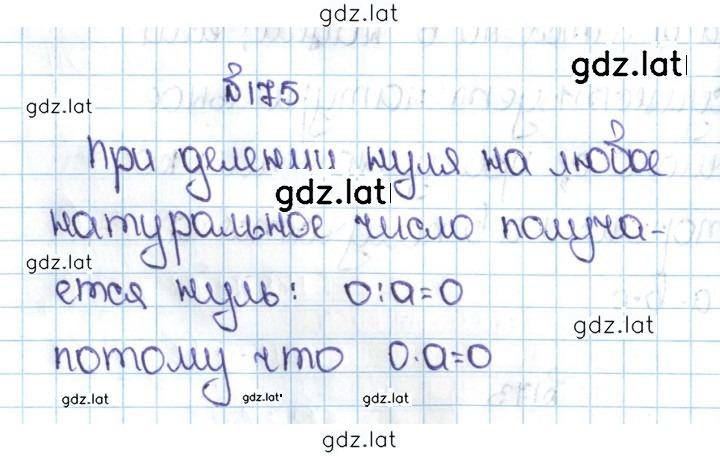 gdz.lat
gdz.lat
№175
gdz.lat
При делении нуля на любое
gdz.lat
натуральное число получа-
gdz.lat
ется нуль: 0:a=0
gdz.lat
потому что 0·a=0
gdz.lat gdz.lat gdz.lat
gdz.lat